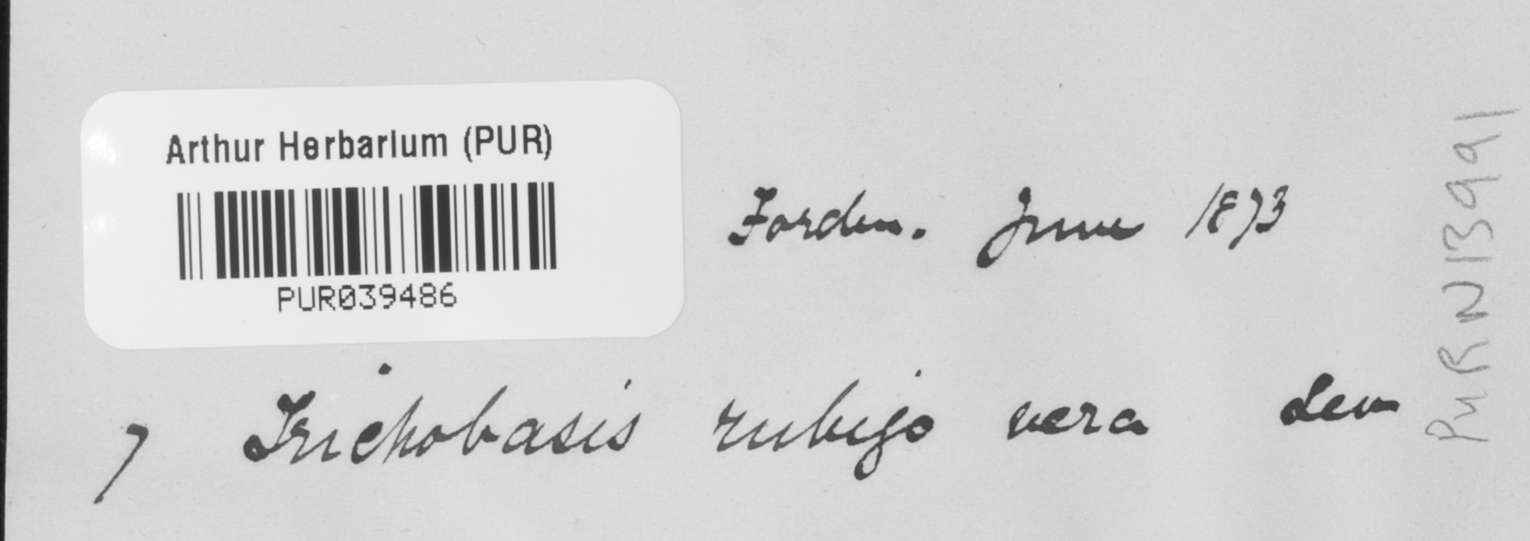 Arthur Herbarium (PUR)
PUR039486
Forden. June 1873
7 Trichobasis rubigo vera Lev
PUR N13991